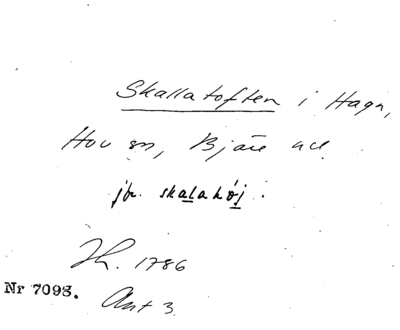 Skallatoften i Haga,
Hov sn, Bjäre hd
jfr. skalahöj.
Lh. 1786
Nr 7093. Ant 3